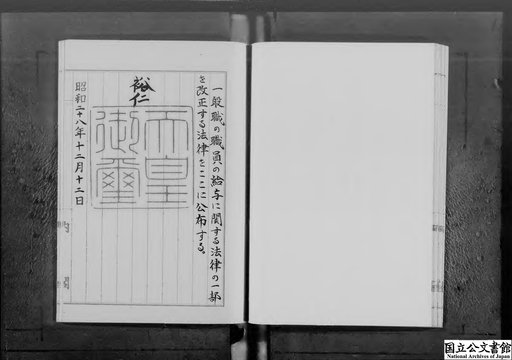 一般職の職員の給与に関する法律の一部
を改正する法律をここに公布する。
裕仁
天皇
御璽
昭和二十八年十二月十二日
国立公文書館
National Archives of Japan